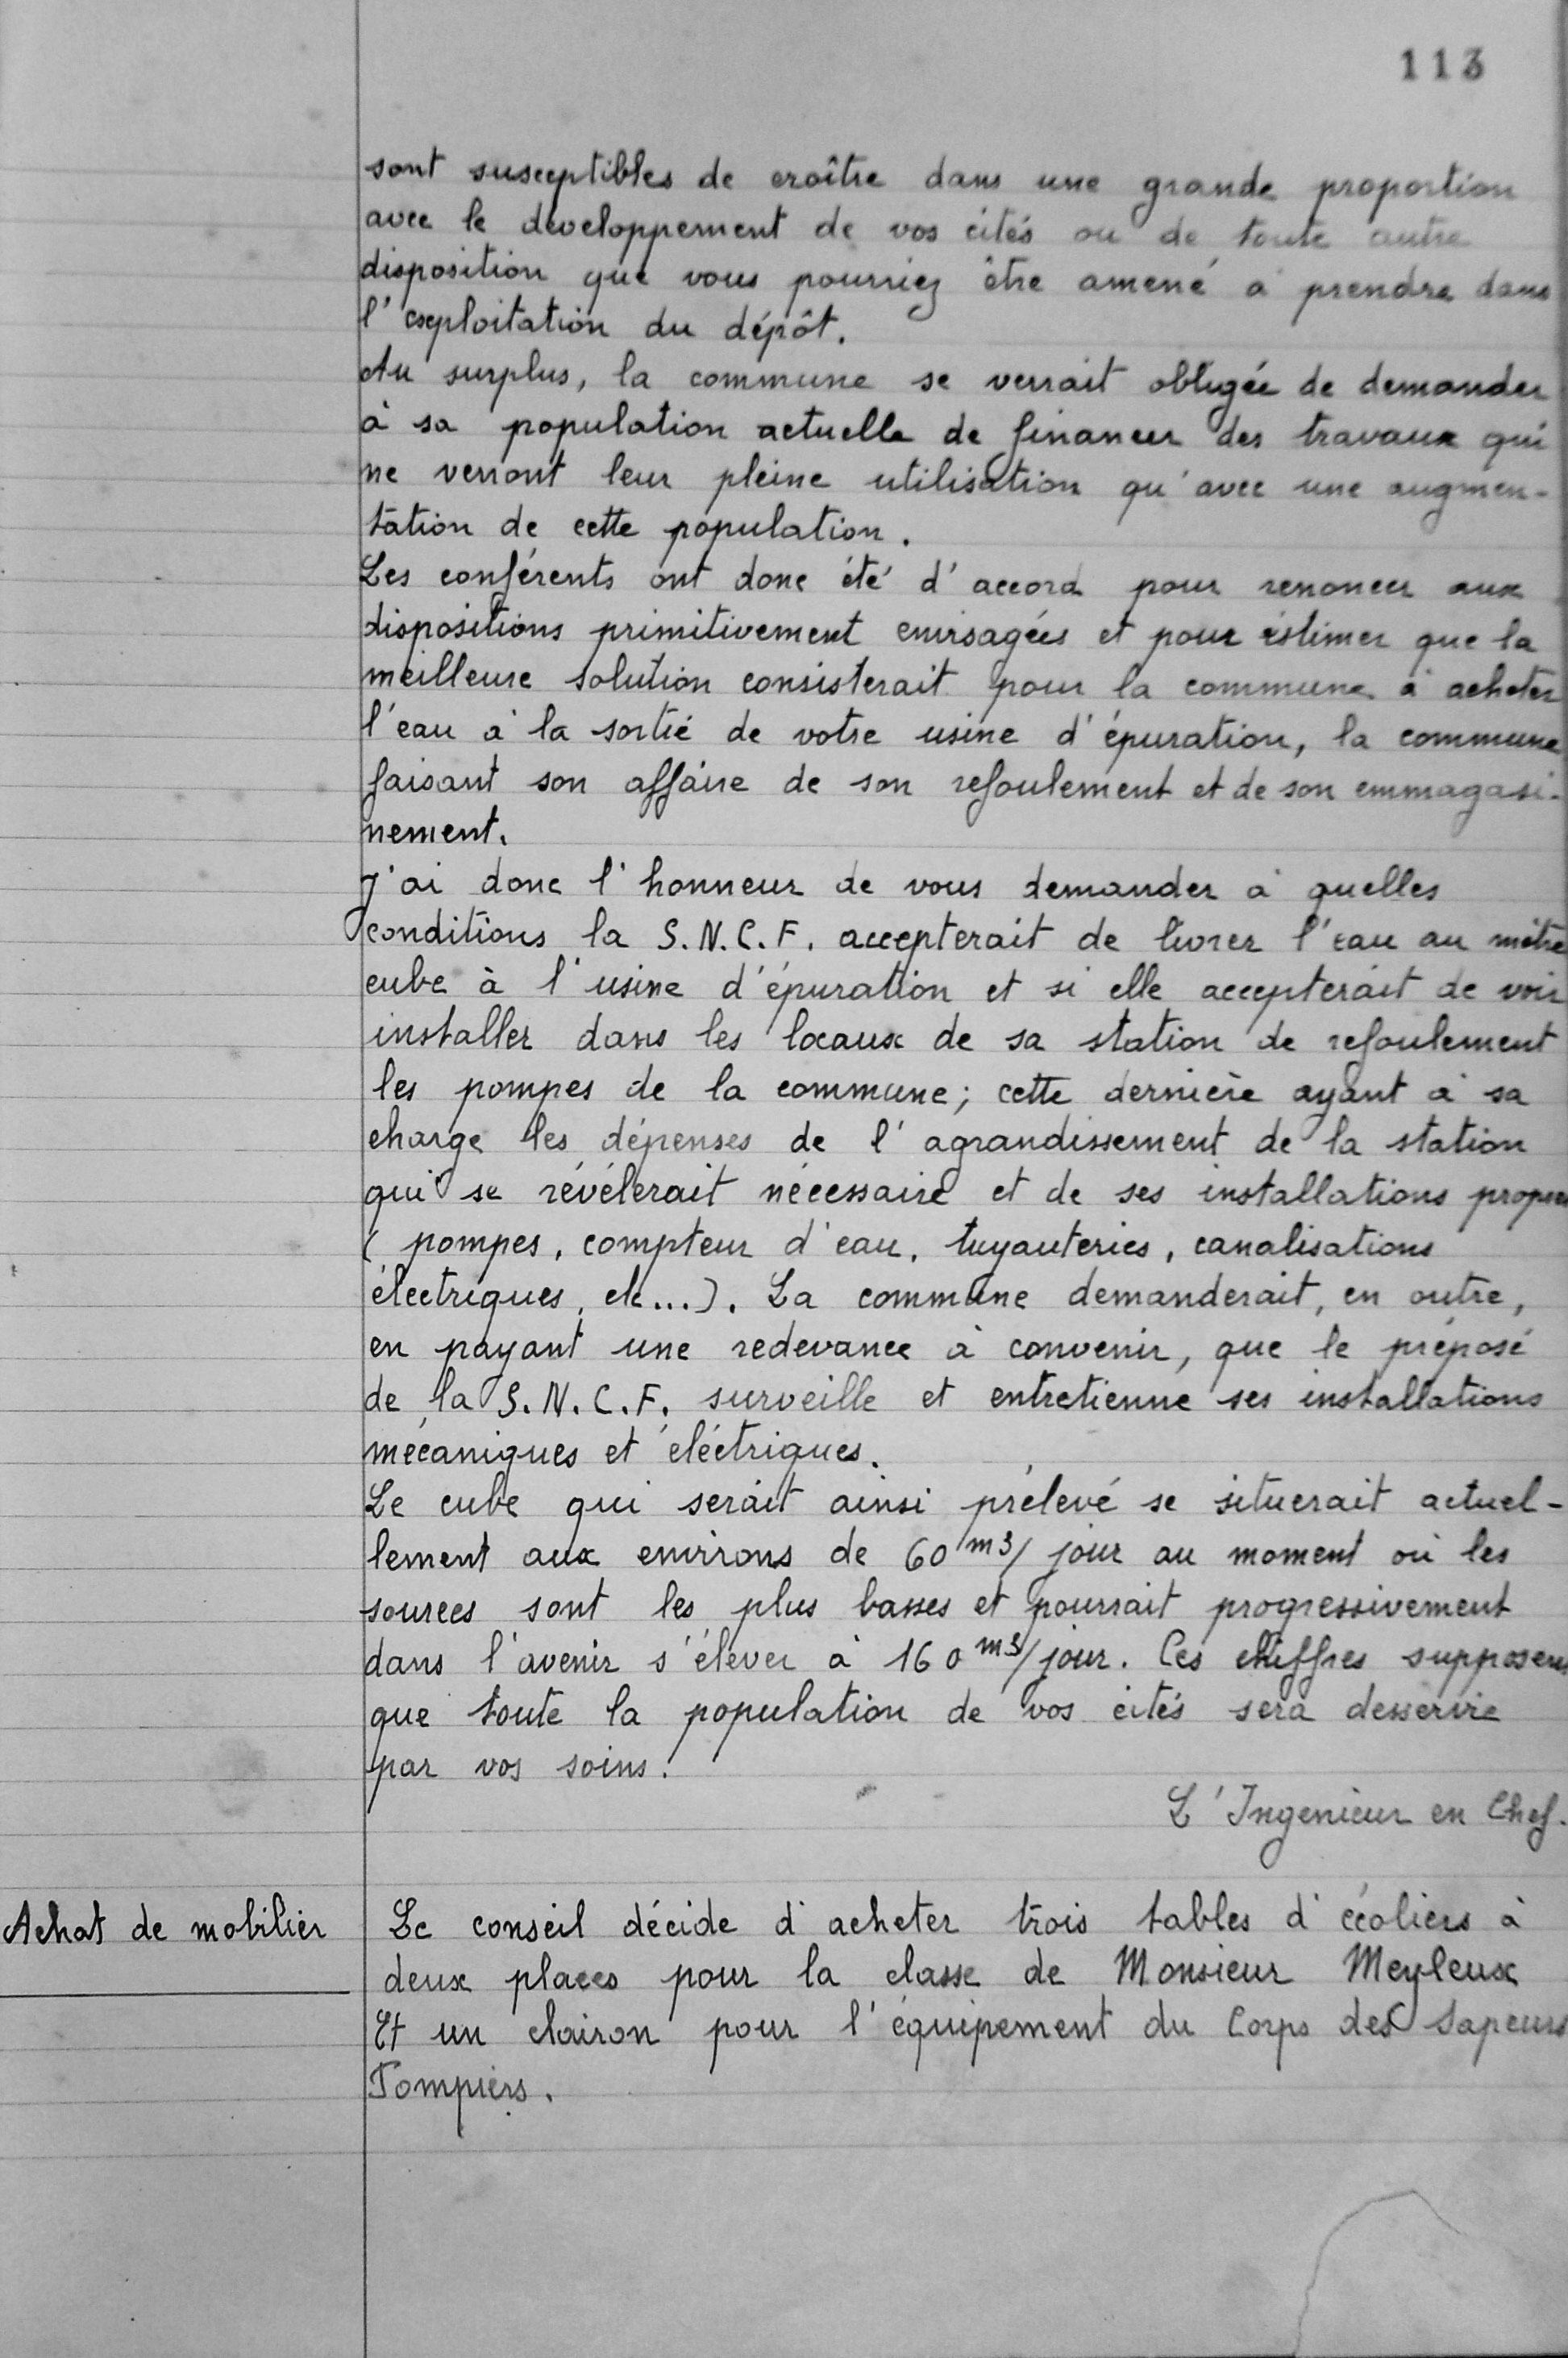 113
sont susceptibles de croître dans une grande proportion
avec le développement de vos cités ou de toute autre
disposition que vous pourriez être amené à prendre dans
l'exploitation du dépôt.
Au surplus, la commune se verrait obligée de demander
à sa population actuelle de financer des travaux qui
ne verront leur pleine utilisation qu'avec une augmen-
tation de cette population.
Les conférents ont donc été d'accord pour renoncer aux
dispositions primitivement envisagées et pour estimer que la
meilleure solution consisterait pour la commune à acheter
l'eau à la sortie de votre usine d'épuration, la commune
faisant son affaire de son refoulement et de son emmagasi-
nement.
J'ai donc l'honneur de vous demander à quelles
conditions la S.N.C.F. accepterait de livrer l'eau au mètre
cube à l'usine d'épuration et si elle accepterait de voir
installer dans les locaux de sa station de refoulement
les pompes de la commune; cette dernière ayant à sa
charge les dépenses de l'agrandissement de la station
qui se révélerait nécessaire et de ses installations propres
( pompes, compteur d'eau, tuyauteries, canalisations
électriques, etc...). La commune demanderait, en outre,
en payant une redevance à convenir, que le préposé
de la S.N.C.F. surveille et entretienne ses installations
mécaniques et électriques.
Le cube qui serait ainsi prélevé se situerait actuel-
lement aux environs de 60 m3/ jour au moment où les
sources sont les plus basses et pourrait progressivement
dans l'avenir s'élever à 160 m3/jour. Ces chiffres supposent
que toute la population de vos cités sera desservie
par vos soins.
L'Ingenieur en Chef.
Achat de mobilier
Le conseil décide d'acheter trois tables d'écoliers à
deux places pour la classe de Monsieur Meyleux
Et un clairon pour l'équipement du Corps des Sapeurs
Pompiers.